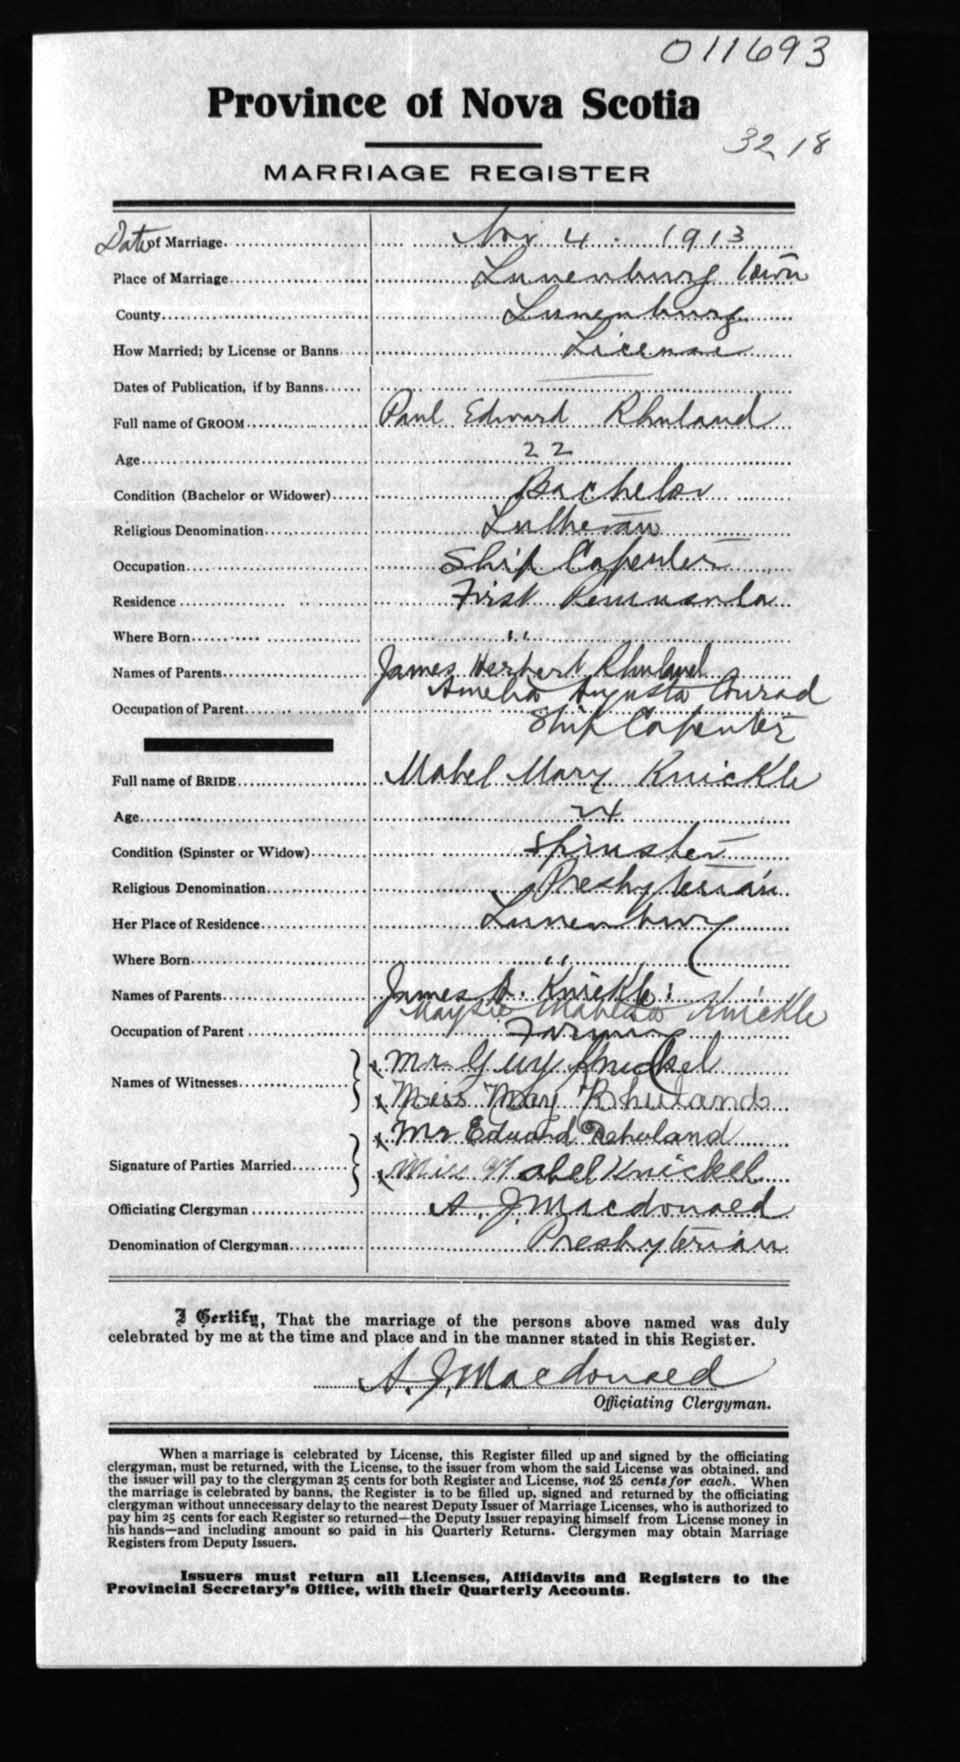 011693
Province of Nova Scotia
3218
MARRIAGE REGISTER
Date of Marriage Nov 4 . 1913
Place of Marriage Lunenburg town
County Lunenburg
How Married; by License or Banns License
Dates of Publication, if by Banns
Full name of GROOM Paul Edward Rhuland
Age 22
Condition (Bachelor or Widower) Bachelor
Religious Denomination Lutheran
Occupation Ship Capenter
Residence First Peninsula
Where Born " "
Names of Parents James Herbert Rhuland
Amelia Augusta Conrad
Occupation of Parent Ship Capenter
Full name of BRIDE Mabel Mary Knickle
Age 24
Condition (Spinster or Widow) Spinster
Religious Denomination Presbyterian
Her Place of Residence Lunenburg
Where Born " "
Names of Parents James A. Knickle
Matilda Knickle
Occupation of Parent Farming
Names of Witnesses } x Mr. Guy Knickel
x Miss May Rhuland
Signature of Parties Married } x Mr Eduard Rehuland
x Miss Mabel Knickel
Officiating Clergyman A. J. Macdonald
Denomination of Clergyman Presbyterian
I Certify, That the marriage of the persons above named was duly
celebrated by me at the time and place and in the manner stated in this Register.
A. J. Macdonald
Officiating Clergyman.
When a marriage is celebrated by License, this Register filled up and signed by the officiating
clergyman, must be returned, with the License, to the issuer from whom the said License was obtained, and
the issuer will pay to the clergyman 25 cents for both Register and License, not 25 cents for each. When
the marriage is celebrated by banns, the Register is to be filled up, signed and returned by the officiating
clergyman without unnecessary delay to the nearest Deputy Issuer of Marriage Licenses, who is authorized to
pay him 25 cents for each Register so returned—the Deputy Issuer repaying himself from License money in
his hands—and including amount so paid in his Quarterly Returns. Clergymen may obtain Marriage
Registers from Deputy Issuers.
Issuers must return all Licenses, Affidavits and Registers to the
Provincial Secretary's Office, with their Quarterly Accounts.